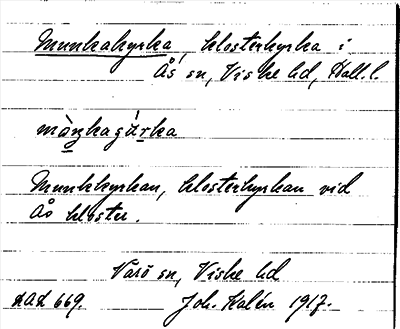 Munkakyrka, klosterkyrka i
Ås sn, Viske hd, Hall. l.
Munkkyrkan, klosterkyrkan vid
Ås kloster.
Värö sn, Viske hd
669. Joh. Kalén 1917.